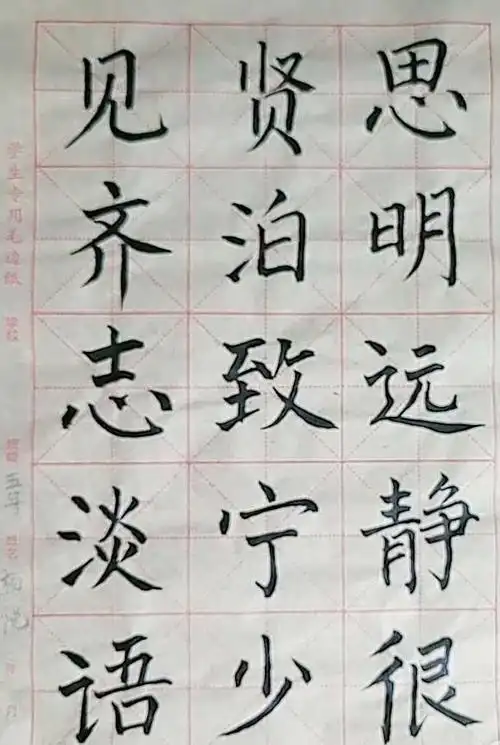 见贤思
齐泊明
志致远
淡宁静
语少很
学生专用毛边纸
学校
班级
姓名
年 月